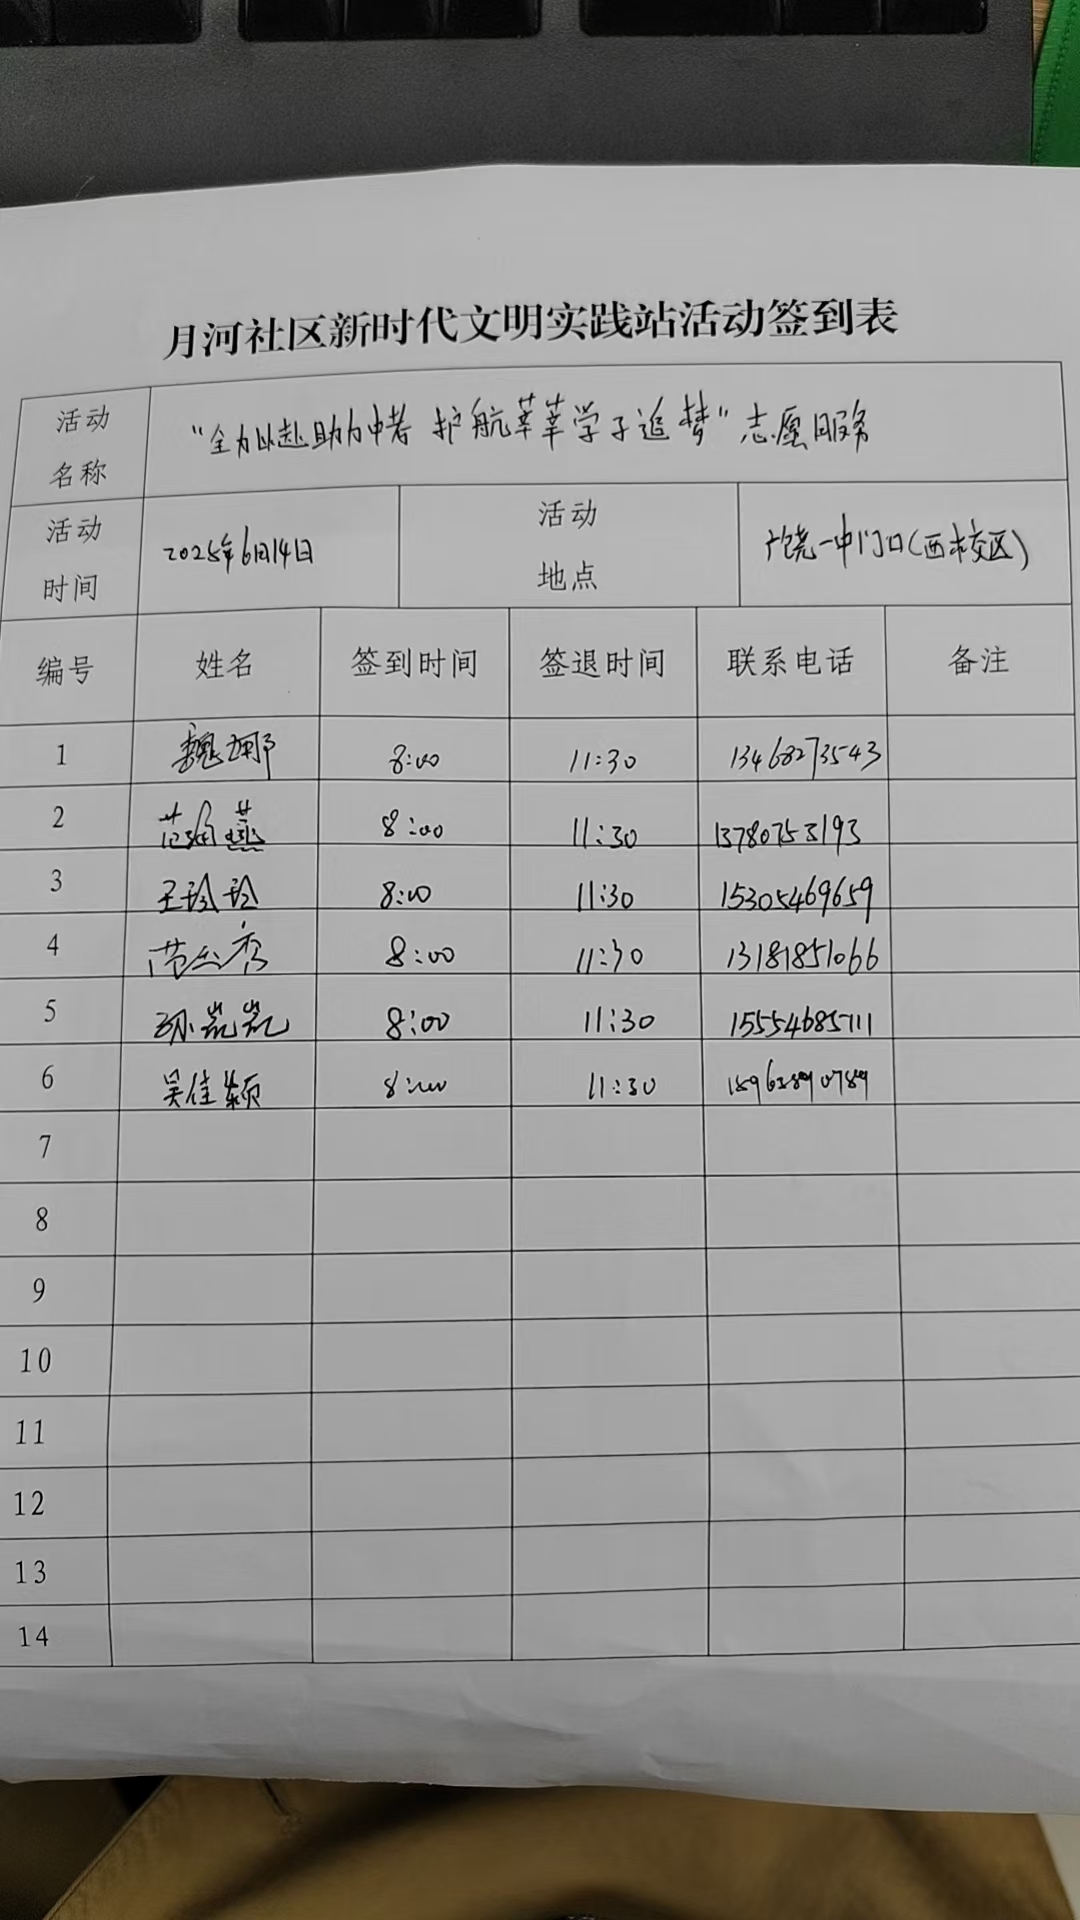 月河社区新时代文明实践站活动签到表
活动名称 “全力以赴助力中考 护航莘莘学子追梦”志愿服务
活动时间 2025年6月14日 活动地点 广饶一中门口(西校区)
编号 姓名 签到时间 签退时间 联系电话 备注
1 魏娜 8:00 11:30 13468273543
2 范海燕 8:00 11:30 13780753193
3 王玲玲 8:00 11:30 15305469659
4 范秀 8:00 11:30 13181851066
5 孙凯凯 8:00 11:30 15554685711
6 吴佳颖 8:00 11:30
7
8
9
10
11
12
13
14